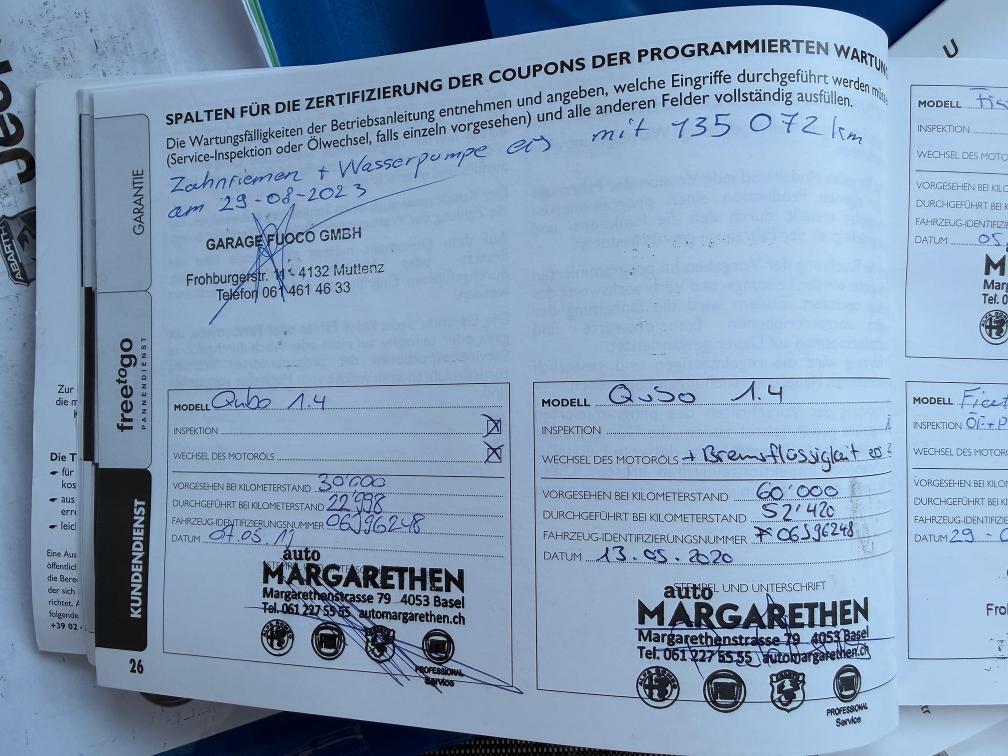 SPALTEN FÜR DIE ZERTIFIZIERUNG DER COUPONS DER PROGRAMMIERTEN WARTUN
Die Wartungsfälligkeiten der Betriebsanleitung entnehmen und angeben, welche Eingriffe durchgeführt werden müsse
(Service-Inspektion oder Ölwechsel, falls einzeln vorgesehen) und alle anderen Felder vollständig ausfüllen.
Zahnriemen + Wasserpumpe ers mit 135 072 km
am 29-08-2023
GARAGE FUOCO GMBH
Frohburgerstr. 11 - 4132 Muttenz
Telefon 061 461 46 33
GARANTIE
freetogo
PANNENDIENST
KUNDENDIENST
26
MODELL Qubo 1.4
INSPEKTION X
WECHSEL DES MOTORÖLS X
VORGESEHEN BEI KILOMETERSTAND 30'000
DURCHGEFÜHRT BEI KILOMETERSTAND 22'998
FAHRZEUG-IDENTIFIZIERUNGSNUMMER 06J96248
DATUM 07.05.
auto
MARGARETHEN
Margarethenstrasse 79 4053 Basel
Tel. 061 227 55 55 automargarethen.ch
PROFESSIONAL
Service
MODELL QuSo 1.4
INSPEKTION
WECHSEL DES MOTORÖLS + Bremsflüssigkeit ers
VORGESEHEN BEI KILOMETERSTAND 60'000
DURCHGEFÜHRT BEI KILOMETERSTAND 52'420
FAHRZEUG-IDENTIFIZIERUNGSNUMMER 06J96248
DATUM 13.05.2020
STEMPEL UND UNTERSCHRIFT
auto
MARGARETHEN
Margarethenstrasse 79 4053 Basel
Tel. 061 227 55 55 automargarethen.ch
ALFA ROMEO
PROFESSIONAL
Service
MODELL Fi
INSPEKTION
WECHSEL DES MOTO
VORGESEHEN BEI KILO
DURCHGEFÜHRT BEI K
FAHRZEUG-IDENTIFIZIE
DATUM 05
M
Marg
Tel. 0
MODELL Fiat
INSPEKTION Öl+P
WECHSEL DES MOTORÖ
VORGESEHEN BEI KILOM
DURCHGEFÜHRT BEI K
FAHRZEUG-IDENTIFIZIER
DATUM 29-0
Froh
Jeep
ABARTH
Zur
die m
Die T
für
kos
aus
erre
leicl
Eine Aus
öffentlich
die Bere
der sich
richtet. A
folgende
+39 02
U